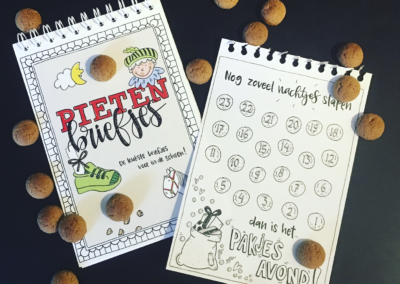 PIETEN
briefjes
De leukste briefjes
voor in de schoen!
Nog zoveel nachtjes slapen
23 22 21 20 19 18
17 16 15 14 13 12
11 10 9 8 7 6
5 4 3 2 1
dan is het
PAKJES
AVOND!